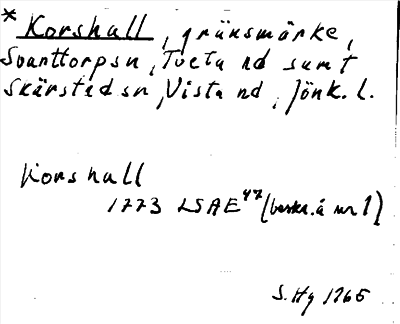 * Korshall, gränsmärke,
Svanttorp sn, Tveta hd samt
Skärstad sn, Vista hd, Jönk. l.
Korshall
1773 LSAE 47 (beskr. å nr 1)
S. Hg 1965